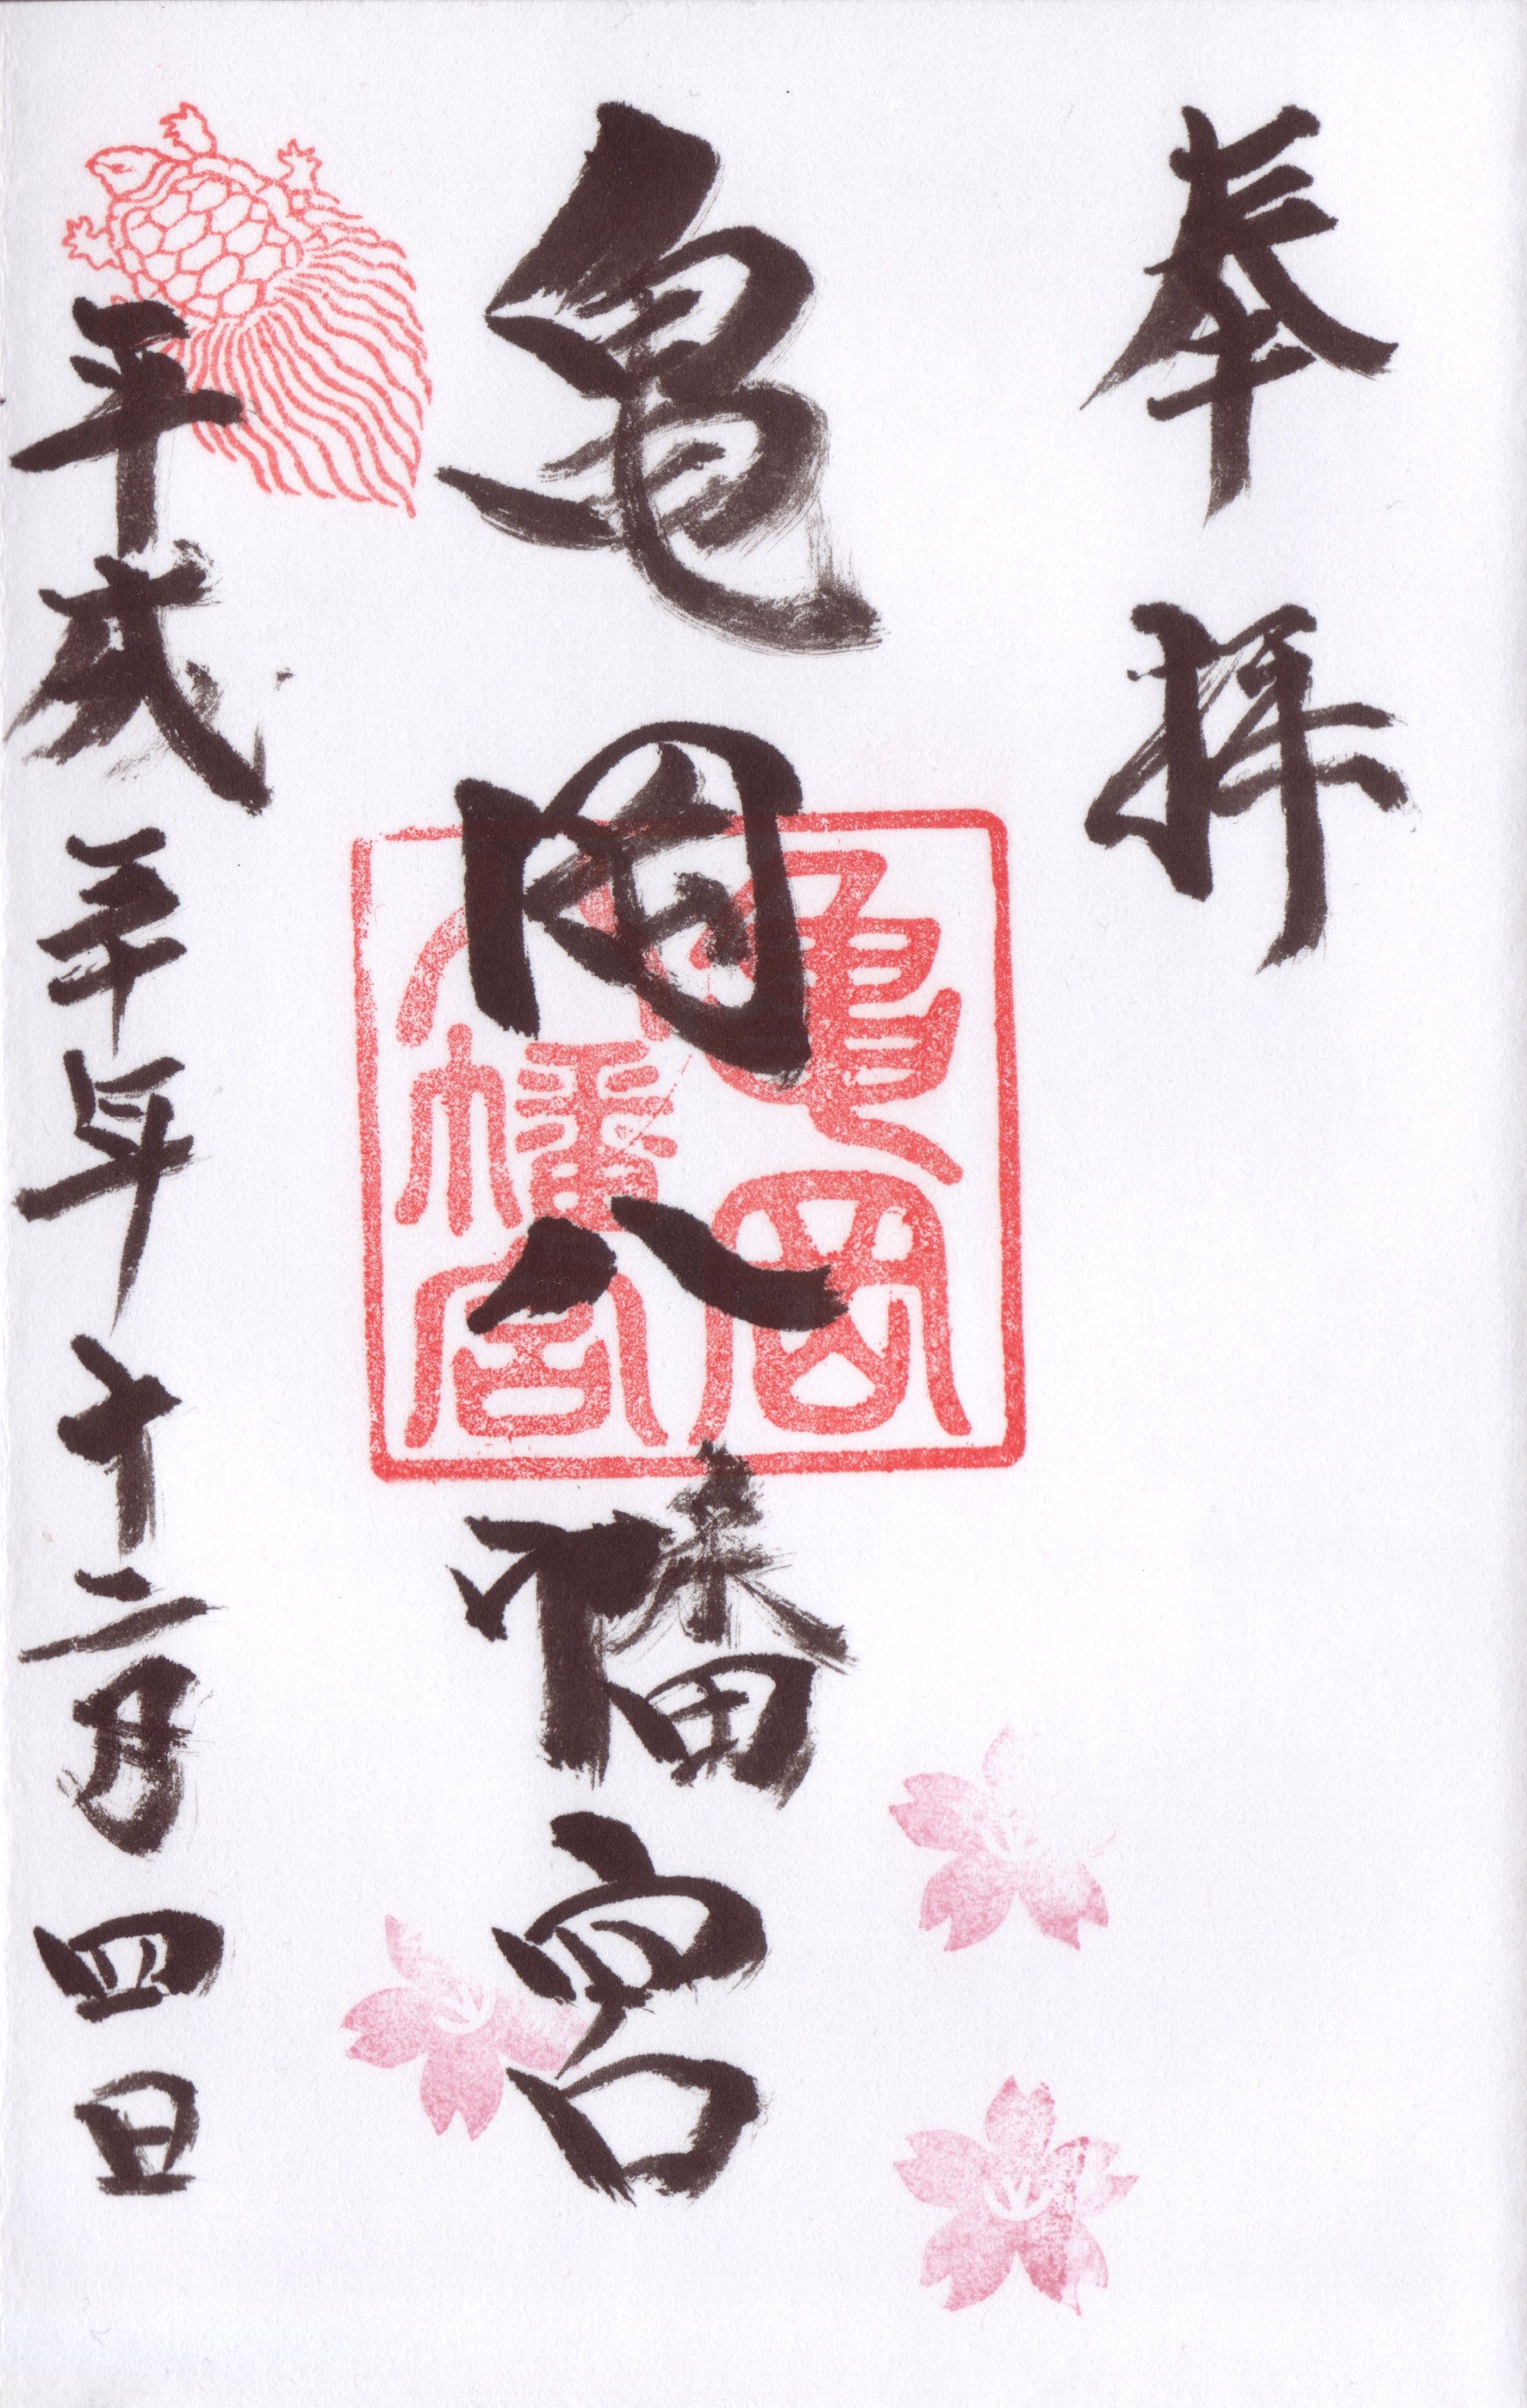 奉拝
亀岡八幡宮
亀岡
八幡宮
平成三十年十二月四日